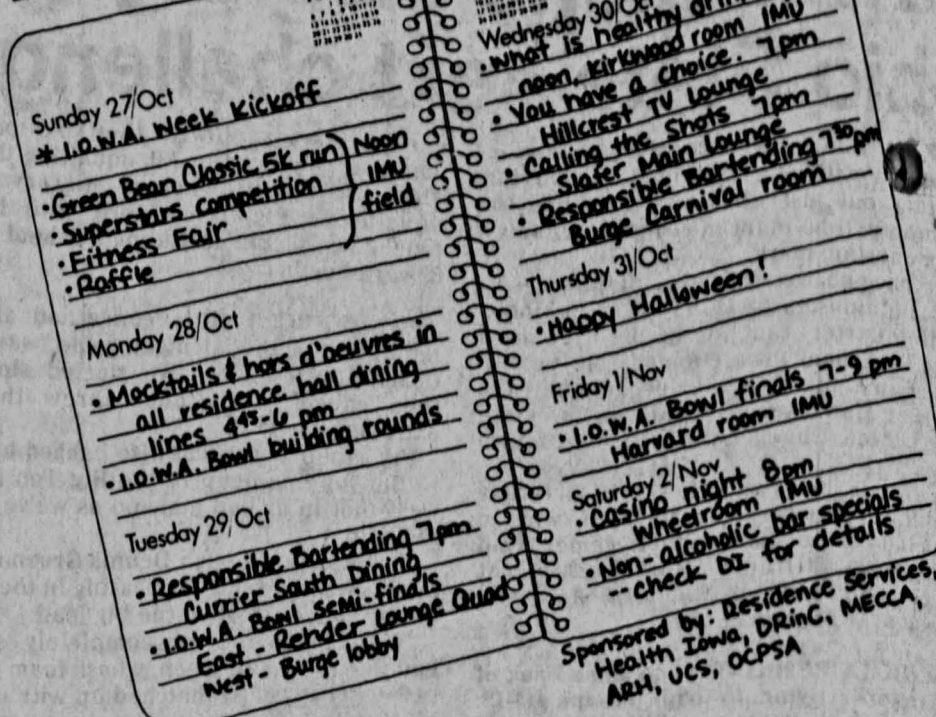 Sunday 27/Oct
* I.O.W.A. Week Kickoff
• Green Bean Classic 5k run
• Superstars competition
• Fitness Fair
• Raffle
Noon
IMU
field
Monday 28/Oct
• Mocktails & hors d'oeuvres in
all residence hall dining
lines 4 45-6 pm
• I.O.W.A. Bowl building rounds
Tuesday 29/Oct
• Responsible Bartending 7pm
Currier South Dining
• I.O.W.A. Bowl semi-finals
East - Reinder Lounge Quad
West - Burge lobby
Wednesday 30/Oct
• What is healthy
noon, Kirkwood room IMU
• You have a choice. 7pm
Hillcrest TV Lounge
• Calling the Shots 7pm
Slater Main Lounge
• Responsible Bartending 7 30 pm
Burge Carnival room
Thursday 31/Oct
• Happy Halloween!
Friday 1/Nov
• I.O.W.A. Bowl finals 7-9 pm
Harvard room IMU
Saturday 2/Nov
• Casino night 8pm
Wheelroom IMU
• Non-alcoholic bar specials
--check DI for details
Sponsored by: Residence Services,
Health Iowa, DRinC, MECCA,
ARH, UCS, OCPSA